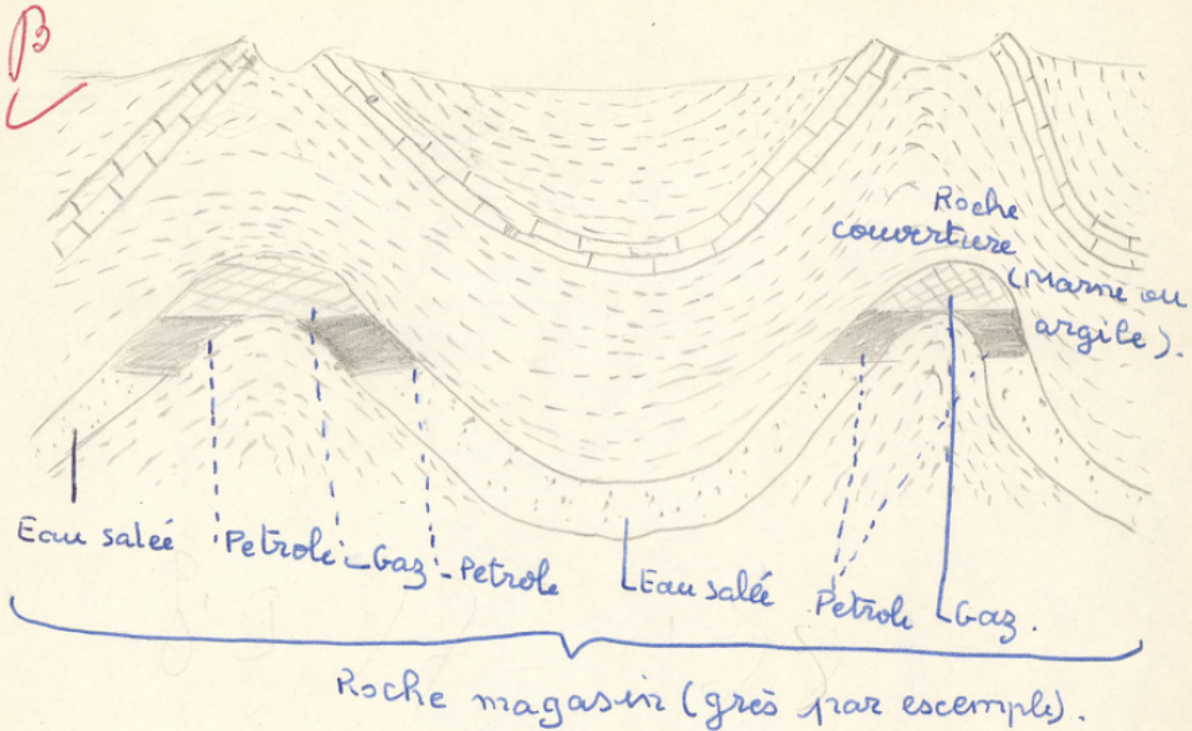 B
Roche
couverture
(Marne ou
argile).
Eau salée Petrole Gaz Petrole Eau salée Petrole Gaz.
Roche magasin (grès par escemple).